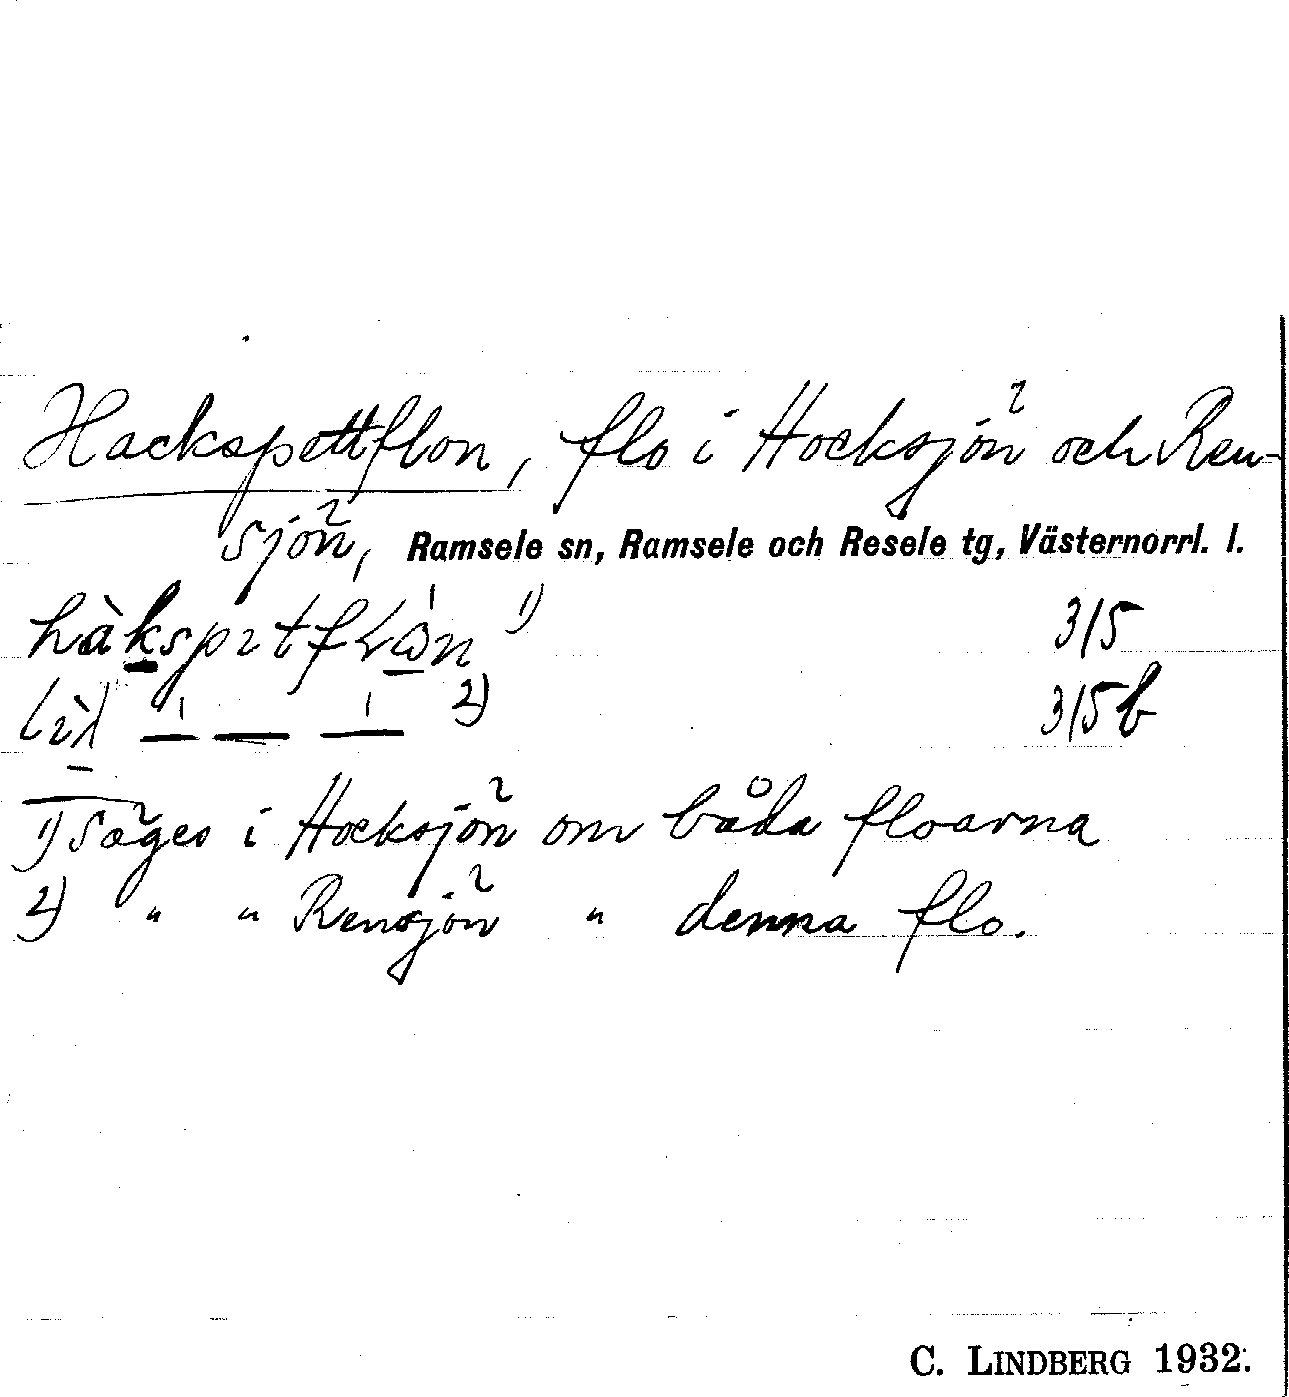 Hackspettflon, flo i Hocksjön och Ren-
sjön, Ramsele sn, Ramsele och Resele tg, Västernorrl. l.
315
315b
1) Säges i Hocksjön om båda floarna
2) " " Rensjön " denna flo.
C. LINDBERG 1932.